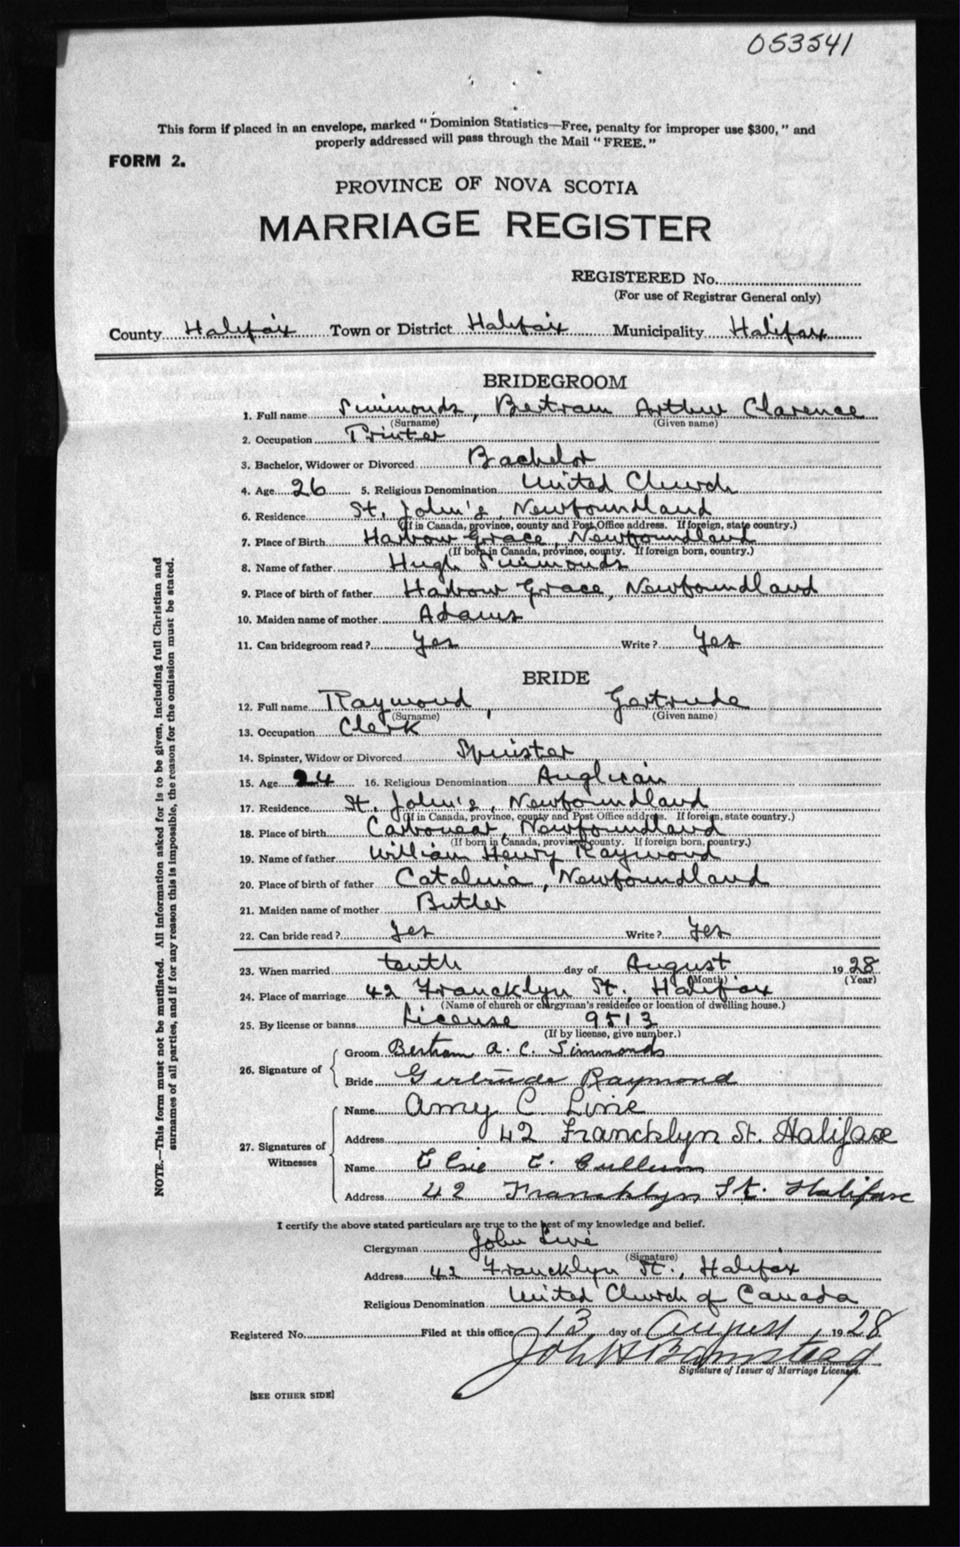 053541
This form if placed in an envelope, marked "Dominion Statistics—Free, penalty for improper use $300," and
properly addressed will pass through the Mail "FREE."
FORM 2.
PROVINCE OF NOVA SCOTIA
MARRIAGE REGISTER
REGISTERED No.
(For use of Registrar General only)
County Halifax Town or District Halifax Municipality Halifax
BRIDEGROOM
1. Full name Simmonds, Bertram Arthur Clarence
(Surname) (Given name)
2. Occupation Printer
3. Bachelor, Widower or Divorced Bachelor
4. Age 26 5. Religious Denomination United Church
6. Residence St. John's, Newfoundland
(If in Canada, province, county and Post Office address. If foreign, state country.)
7. Place of Birth Harbour Grace, Newfoundland
(If born in Canada, province, county. If foreign born, country.)
8. Name of father Hugh Simmonds
9. Place of birth of father Harbour Grace, Newfoundland
10. Maiden name of mother Adams
11. Can bridegroom read? Yes Write? Yes
BRIDE
12. Full name Raymond, Gertrude
(Surname) (Given name)
13. Occupation Clerk
14. Spinster, Widow or Divorced Spinster
15. Age 24 16. Religious Denomination Anglican
17. Residence St. John's, Newfoundland
(If in Canada, province, county and Post Office address. If foreign, state country.)
18. Place of birth Carbonear, Newfoundland
(If born in Canada, province, county. If foreign born, country.)
19. Name of father William Henry Raymond
20. Place of birth of father Catalina, Newfoundland
21. Maiden name of mother Butler
22. Can bride read? Yes Write? Yes
23. When married tenth day of August 1928
(Month) (Year)
24. Place of marriage 42 Francklyn St., Halifax
(Name of church or clergyman's residence or location of dwelling house.)
25. By license or banns License 9513
(If by license, give number.)
26. Signature of
Groom Bertram A. C. Simmonds
Bride Gertrude Raymond
27. Signatures of Witnesses
Name Amy C. Line
Address 42 Francklyn St. Halifax
Name Elsie E. Cullum
Address 42 Francklyn St. Halifax
I certify the above stated particulars are true to the best of my knowledge and belief.
Clergyman John Line
(Signature)
Address 42 Francklyn St., Halifax
Religious Denomination United Church of Canada
Registered No. Filed at this office 13 day of August 1928
Signature of Issuer of Marriage Licenses.
[SEE OTHER SIDE]
NOTE.—This form must not be mutilated. All information asked for is to be given, including full Christian and
surnames of all parties, and if for any reason this is impossible, the reason for the omission must be stated.